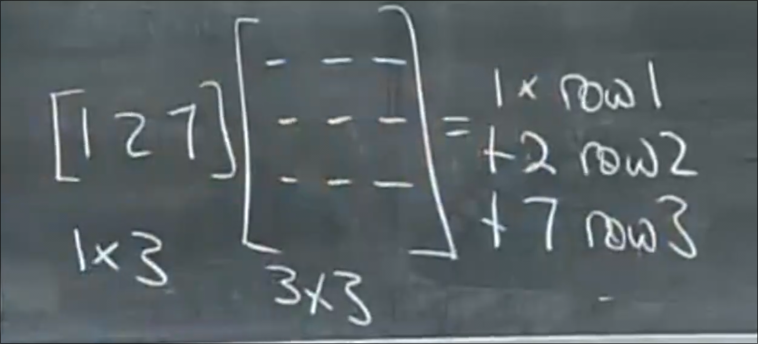 [1 2 7] [- - - - - - - - -] = 1 × row1
+2 row2
+7 row3
1×3
3×3